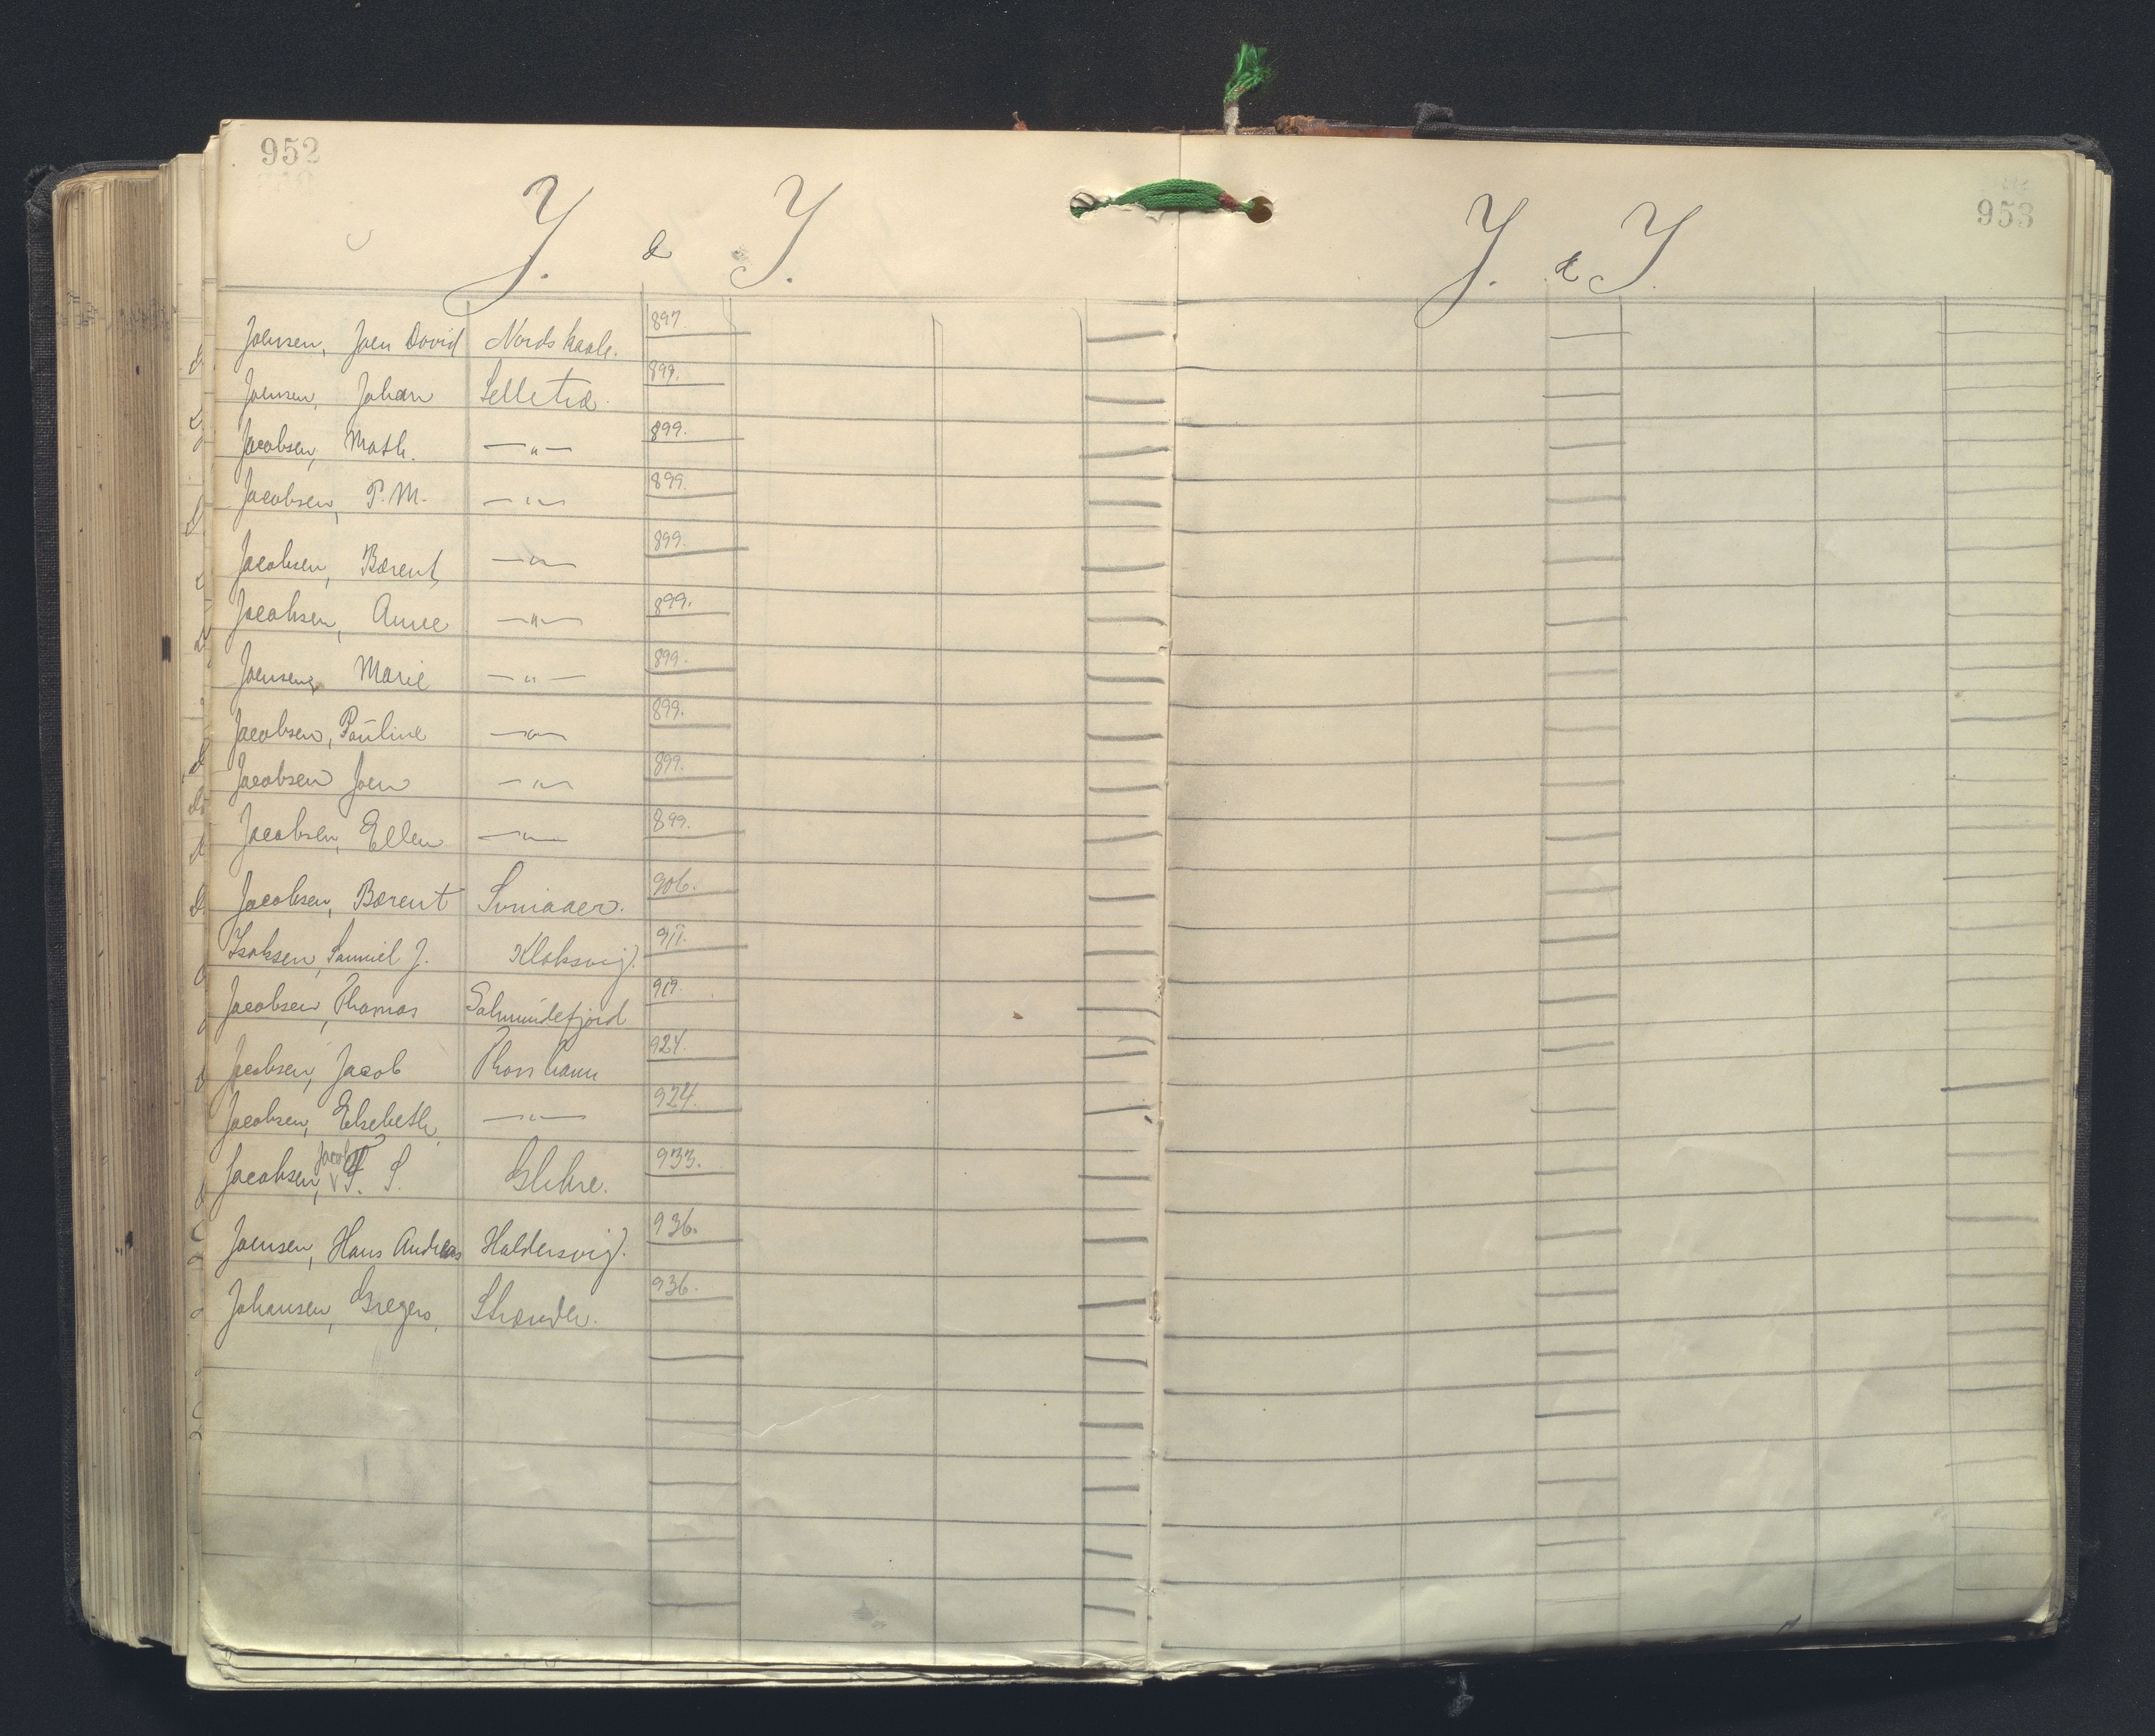 952
J. & I.
Joensen, Joen David Nordskaale. 897.
Joensen, Johan Selletræ. 899.
Jacobsen, Math. —"— 899.
Jacobsen, P. M. —"— 899.
Jacobsen, Berent —"— 899.
Jacobsen, Anne —"— 899.
Joensen, Marie —"— 899.
Jacobsen, Pauline —"— 899.
Jacobsen Joen —"— 899.
Jacobsen, Ellen —"— 899.
Jacobsen, Berent Svinaaer. 906.
Isaksen, Samuel J. Klaksvig. 911.
Jacobsen, Thomas Salmundefjord 919.
Jacobsen, Jacob Thorshavn 924.
Jacobsen, Elsebeth, —"— 924.
Jacobsen, Jacob F. S. Glibre. 933.
Joensen, Hans Andreas Haldersvig. 936.
Johansen, Gregers, Strænder. 936.
953
J. & I.